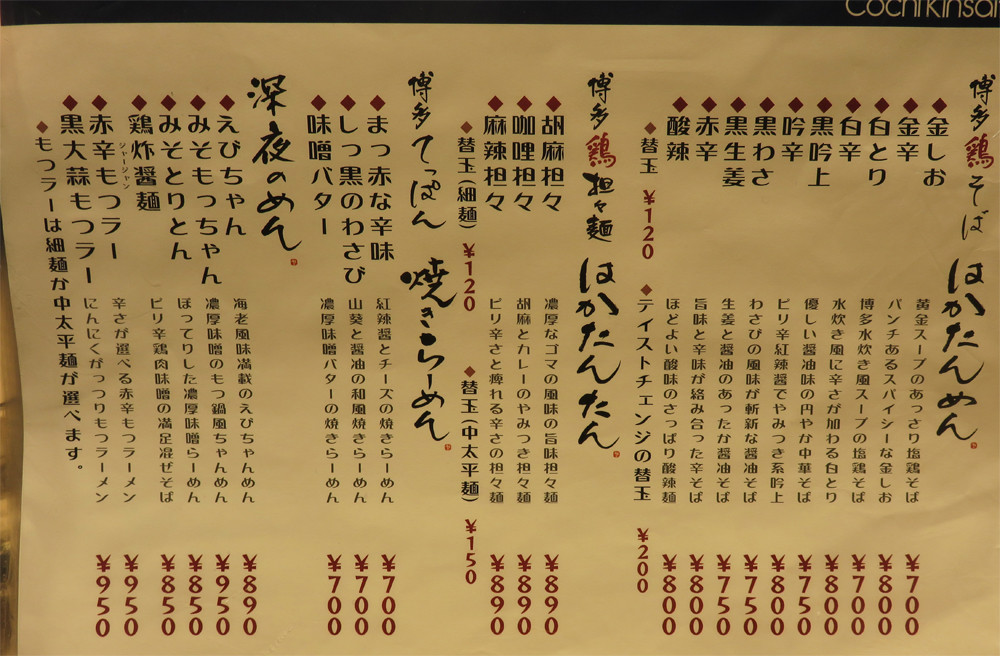 Cochi Kinsai
博多鶏そば はかたんめん
◆金しお 黄金スープのあっさり塩鶏そば ¥700
◆金辛 パンチあるスパイシーな金しお ¥800
◆白とり 博多水炊き風スープの塩鶏そば ¥700
◆白辛 水炊き風に辛さが加わる白とり ¥800
◆黒吟上 優しい醤油味の円やか中華そば ¥750
◆吟辛 ピリ辛紅辣醤でやみつき系吟上 ¥800
◆黒わさ わさびの風味が斬新な醤油そば ¥750
◆黒生姜 生姜と醤油のあったか醤油そば ¥750
◆赤辛 旨味と辛味が絡み合った辛そば ¥800
◆酸辣 ほどよい酸味のさっぱり酸辣麺 ¥800
◆替玉 ¥120 ◆テイストチェンジの替玉 ¥200
博多鶏担々麺 はかたんたん
◆胡麻担々 濃厚なゴマの風味の旨味担々麺 ¥890
◆咖哩担々 胡麻とカレーのやみつき担々麺 ¥890
◆麻辣担々 ピリ辛さと痺れる辛さの担々麺 ¥890
◆替玉(細麺) ¥120 ◆替玉(中太平麺) ¥150
博多てっぱん 焼きらーめん
◆まっ赤な辛味 紅辣醤とチーズの焼きらーめん ¥700
◆しっ黒のわさび 山葵と醤油の和風焼きらーめん ¥700
◆味噌バター 濃厚味噌バターの焼きらーめん ¥700
深夜のめん
◆えびちゃん 海老風味満載のえびちゃんめん ¥890
◆みそもっちゃん 濃厚味噌のもつ鍋風ちゃんめん ¥950
◆みそとりとん ぽってりした濃厚味噌らーめん ¥850
◆鶏炸醤麺 ジャージャン ピリ辛鶏肉味噌の満足混ぜそば ¥850
◆赤辛もつラー 辛さが選べる赤辛もつラーメン ¥950
◆黒大蒜もつラー にんにくがっつりもつラーメン ¥950
◆もつラーは細麺か中太平麺が選べます。